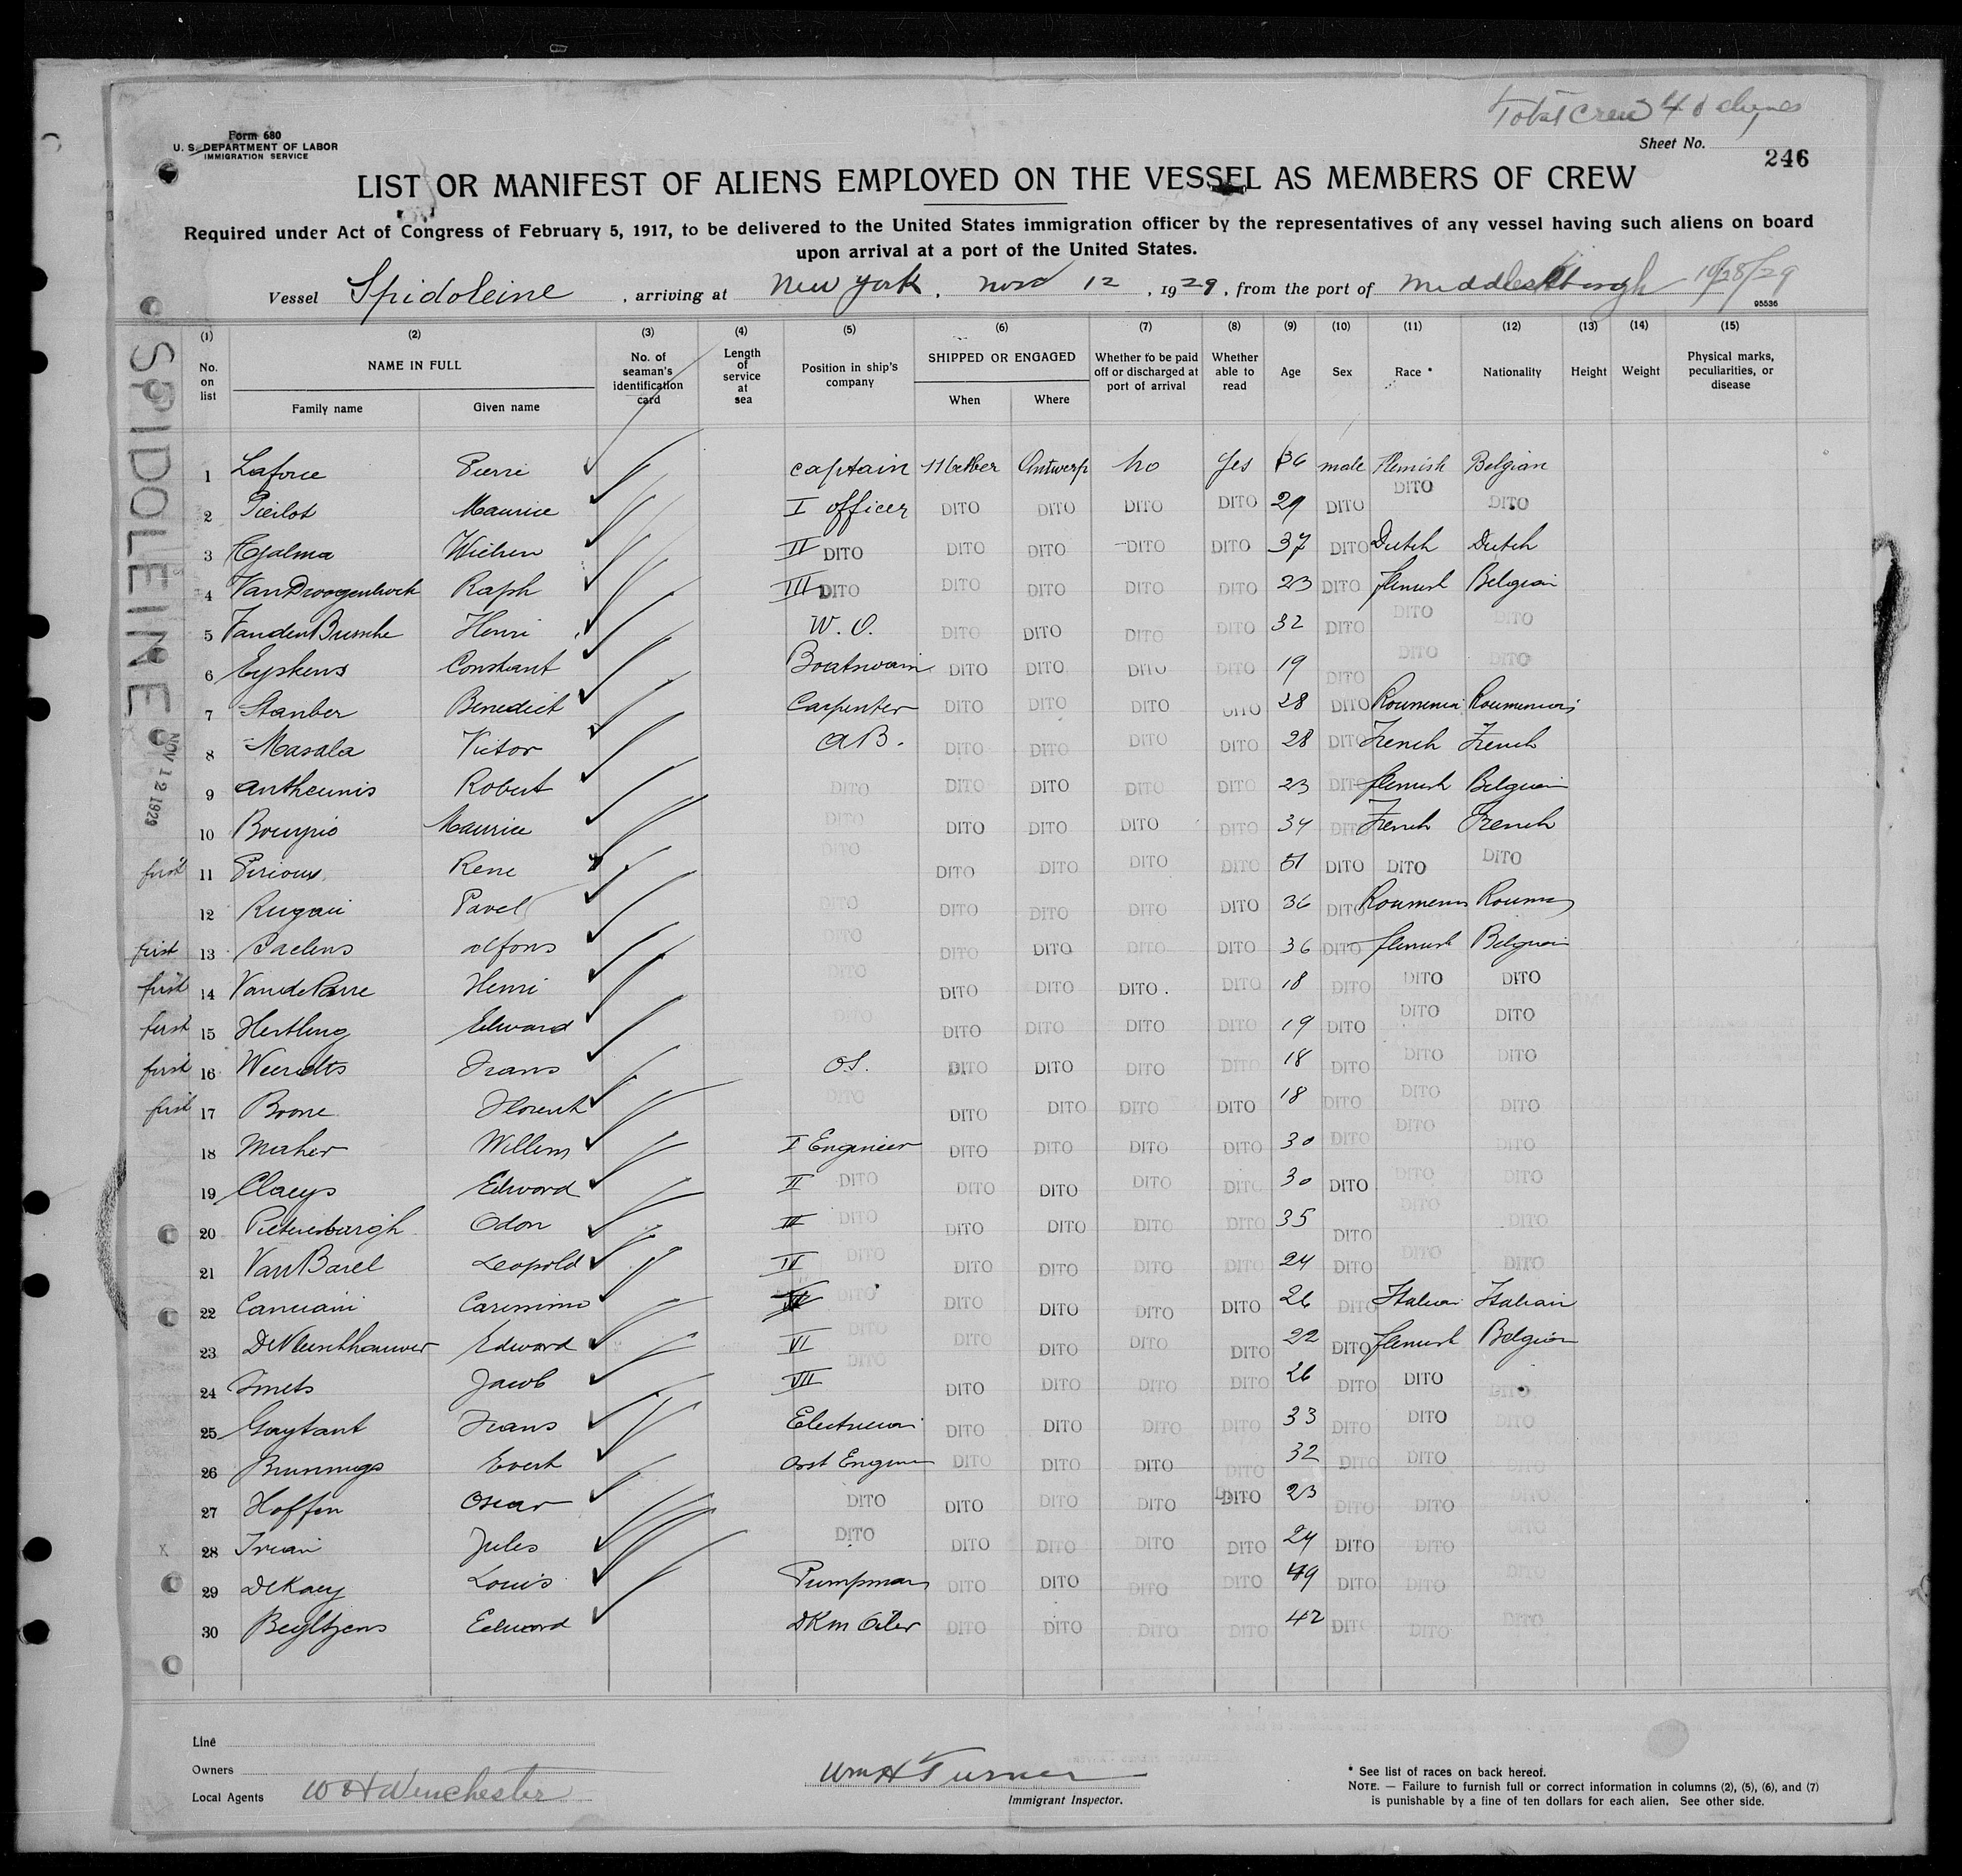 Total Crew 40
Form 680
U. S. DEPARTMENT OF LABOR
IMMIGRATION SERVICE
Sheet No.
246
LIST OR MANIFEST OF ALIENS EMPLOYED ON THE VESSEL AS MEMBERS OF CREW
Required under Act of Congress of February 5, 1917, to be delivered to the United States immigration officer by the representatives of any vessel having such aliens on board
upon arrival at a port of the United States.
Vessel Spidoleine, arriving at New York, Nov 12, 1929, from the port of Middlesbrough 10/28/29
95536
SPIDOLEINE
NOV 12 1929
(1) (2) (3) (4) (5) (6) (7) (8) (9) (10) (11) (12) (13) (14) (15)
No. on list NAME IN FULL Family name Given name No. of seaman's identification card Length of service at sea Position in ship's company SHIPPED OR ENGAGED When Where Whether to be paid off or discharged at port of arrival Whether able to read Age Sex Race * Nationality Height Weight Physical marks, peculiarities, or disease
1 Laforce Pierre captain Antwerp no Yes 36 male Flemish Belgian
2 Pierlot Maurice I officer DITO DITO DITO DITO 29 DITO DITO DITO
3 Tjalma Wichen II DITO DITO DITO DITO DITO 37 DITO Dutch Dutch
4 Van Droogenbroek Raph III DITO DITO DITO DITO DITO 23 DITO flemish Belgian
5 Henri W. O. DITO DITO DITO DITO 32 DITO DITO DITO
6 Eyskens Constant Boatswain DITO DITO DITO DITO 19 DITO DITO DITO
7 Stanber Benedict Carpenter DITO DITO DITO DITO 28 DITO Roumenia
8 Masala Victor AB. DITO DITO DITO DITO 28 DITO French French
9 Antheunis Robert DITO DITO DITO DITO DITO 23 DITO flemish Belgian
10 Maurice DITO DITO DITO DITO DITO 34 DITO French French
first 11 Pirious Rene DITO DITO DITO DITO DITO 51 DITO DITO DITO
12 Pavel DITO DITO DITO DITO DITO 36 DITO
first 13 Paelens Alfons DITO DITO DITO DITO DITO 36 DITO flemish Belgian
first 14 Henri DITO DITO DITO DITO. DITO 18 DITO DITO DITO
first 15 Hertling Edward DITO DITO DITO DITO DITO 19 DITO DITO DITO
first 16 Frans OS. DITO DITO DITO DITO 18 DITO DITO DITO
first 17 Boone Florent DITO DITO DITO DITO DITO 18 DITO DITO DITO
18 Maher Willem I Engineer DITO DITO DITO DITO 30 DITO DITO DITO
19 Claeys Edward II DITO DITO DITO DITO DITO 30 DITO DITO DITO
20 Odon III DITO DITO DITO DITO DITO 35 DITO DITO DITO
21 Van Barel Leopold IV DITO DITO DITO DITO DITO 24 DITO DITO DITO
22 Canciani DITO DITO DITO DITO DITO 26 DITO Italian Italian
23 Edward VI DITO DITO DITO DITO DITO 22 DITO flemish Belgian
24 Smets Jacob VII DITO DITO DITO DITO DITO 26 DITO DITO DITO
25 Gaytant Frans Electrician DITO DITO DITO DITO 33 DITO DITO DITO
26 Evert DITO DITO DITO DITO 32 DITO DITO
27 Hoffen Oscar DITO DITO DITO DITO DITO 23 DITO DITO DITO
x 28 Jules DITO DITO DITO DITO DITO 24 DITO DITO DITO
29 Louis Pumpman DITO DITO DITO DITO 49 DITO DITO DITO
30 Beyltjens Edward DKm Oiler DITO DITO DITO DITO 42 DITO DITO DITO
Line
Owners
Local Agents W H Winchester
Wm H Turner
Immigrant Inspector.
* See list of races on back hereof.
NOTE. — Failure to furnish full or correct information in columns (2), (5), (6), and (7)
is punishable by a fine of ten dollars for each alien. See other side.